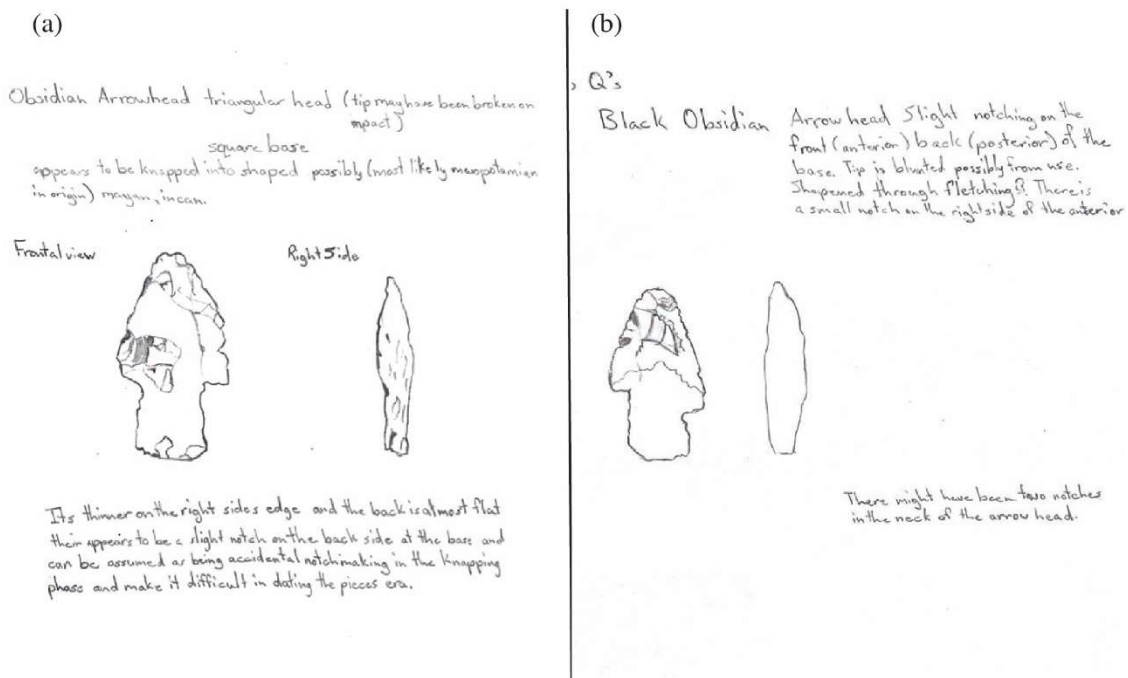 (a)
Obsidian Arrowhead triangular head (tip may have been broken on
impact)
square base
appears to be knapped into shaped possibly (most likely mesopotamian
in origin) mayan, incan.
Frontal view
Right Side
Its thinner on the right sides edge and the back is almost flat
their appears to be a slight notch on the back side at the base and
can be assumed as being accidental notchmaking in the knapping
phase and make it difficult in dating the pieces era.
(b)
Q's
Black Obsidian Arrow head Slight notching on the
front (anterior) back (posterior) of the
base. Tip is blunted possibly from use.
Shapened through fletching?. There is
a small notch on the right side of the anterior
There might have been two notches
in the neck of the arrow head.